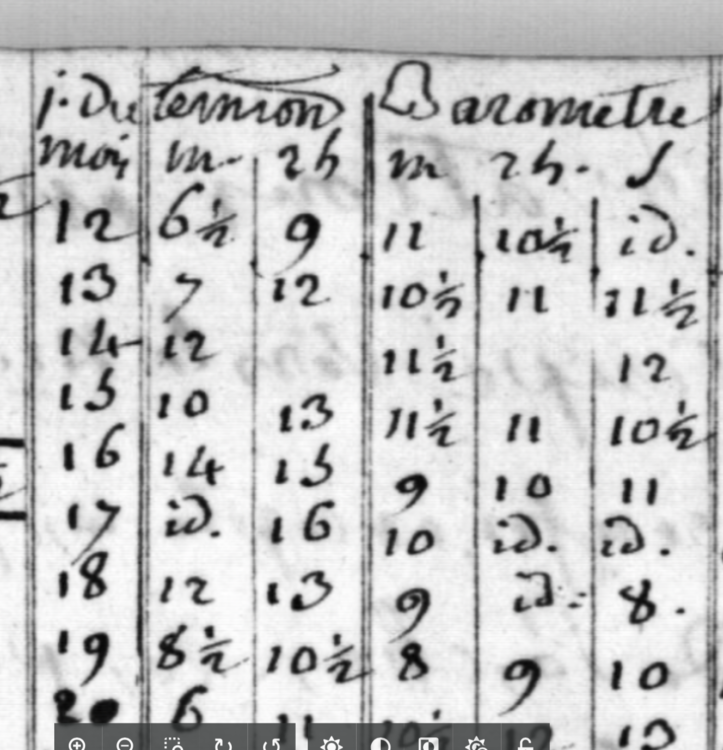 j. Du termon Barometre
mois m 2h m 2h. S
12 6½ 9 11 10½ id.
13 7 12 10½ 11 11½
14 12 11½ 12
15 10 13 11½ 11 10½
16 14 15 9 10 11
17 id. 16 10 id. id.
18 12 13 9 id. 8.
19 8½ 10½ 8 9 10
20 6 11